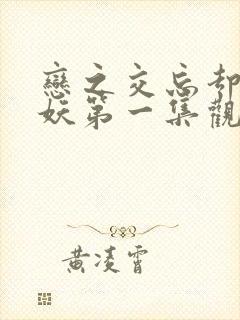 戀之交忘却
妖第一集觀
黃凌霄